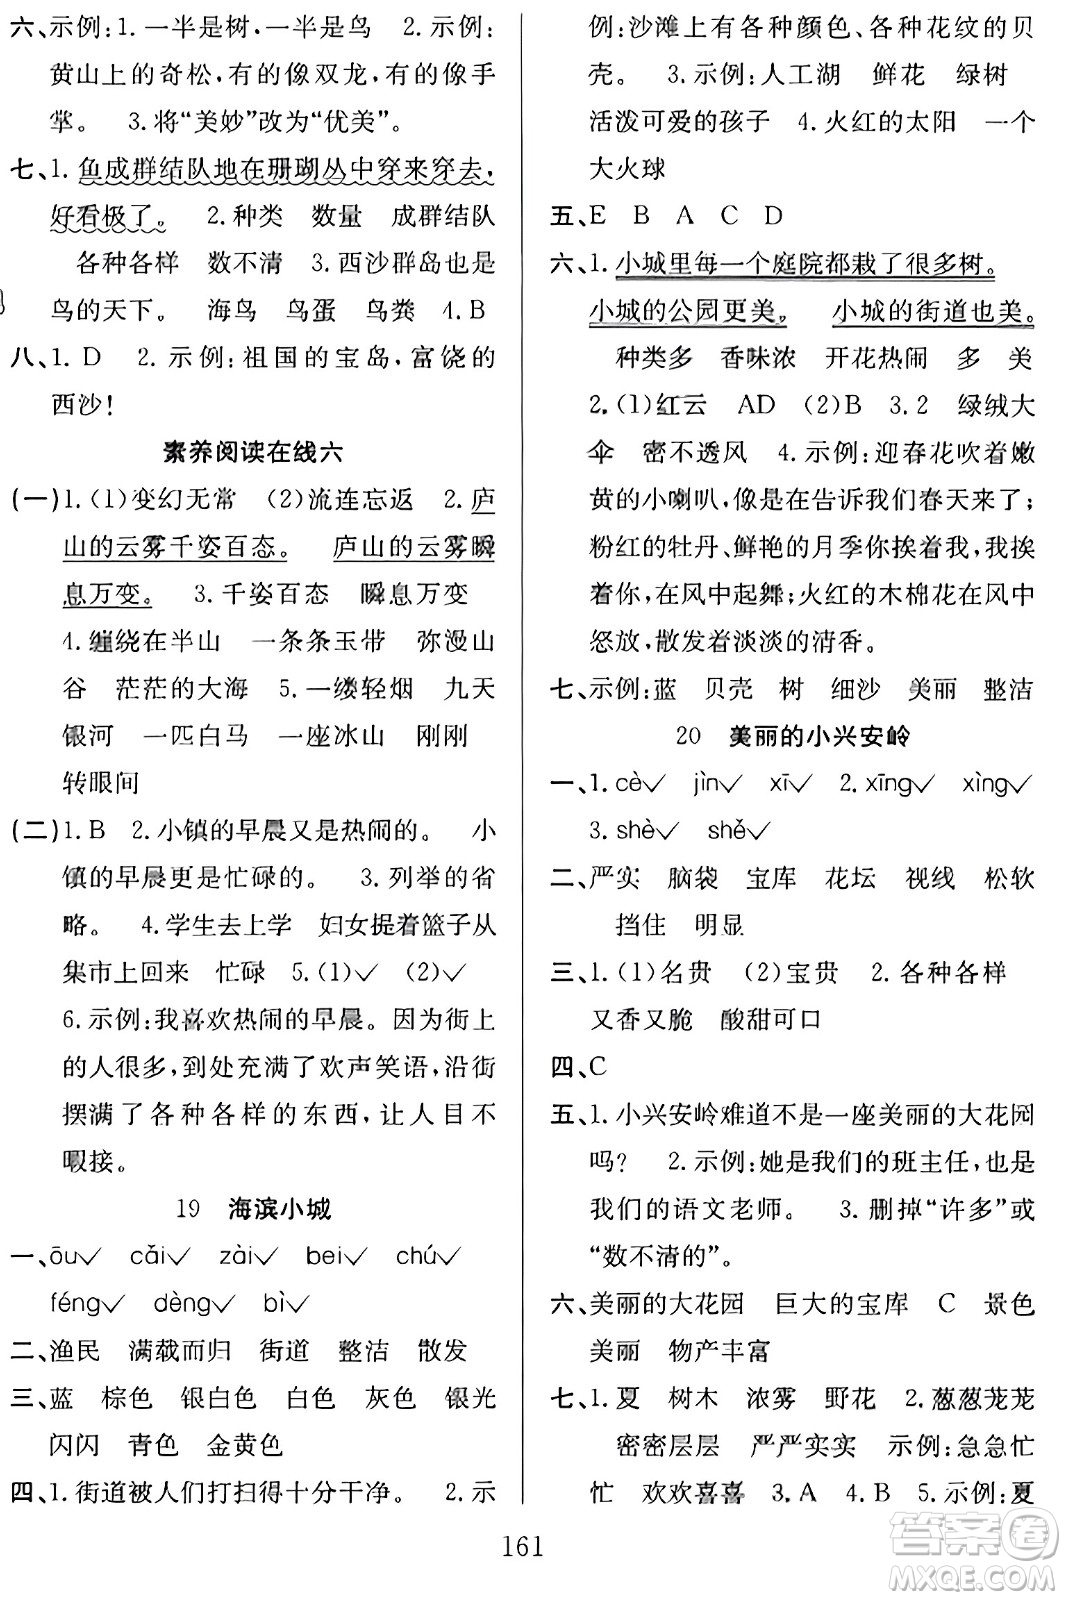 六、示例:1.一半是树,一半是鸟 2.示例:
黄山上的奇松,有的像双龙,有的像手
掌。 3.将“美妙”改为“优美”。
七、1.鱼成群结队地在珊瑚丛中穿来穿去,
好看极了。 2.种类 数量 成群结队
各种各样 数不清 3.西沙群岛也是
鸟的天下。 海鸟 鸟蛋 鸟粪 4.B
八、1.D 2.示例:祖国的宝岛,富饶的
西沙!
素养阅读在线六
(一)1.(1)变幻无常 (2)流连忘返 2.庐
山的云雾千姿百态。 庐山的云雾瞬
息万变。 3.千姿百态 瞬息万变
4.缠绕在半山 一条条玉带 弥漫山
谷 茫茫的大海 5.一缕轻烟 九天
银河 一匹白马 一座冰山 刚刚
转眼间
(二)1.B 2.小镇的早晨又是热闹的。 小
镇的早晨更是忙碌的。 3.列举的省
略。 4.学生去上学 妇女提着篮子从
集市上回来 忙碌 5.(1)✓ (2)✓
6.示例:我喜欢热闹的早晨。因为街上
的人很多,到处充满了欢声笑语,沿街
摆满了各种各样的东西,让人目不
暇接。
19 海滨小城
一、ōu✓ cǎi✓ zài✓ bei✓ chú✓
féng✓ dèng✓ bì✓
二、渔民 满载而归 街道 整洁 散发
三、蓝 棕色 银白色 白色 灰色 银光
闪闪 青色 金黄色
四、1.街道被人们打扫得十分干净。 2.示
例:沙滩上有各种颜色、各种花纹的贝
壳。 3.示例:人工湖 鲜花 绿树
活泼可爱的孩子 4.火红的太阳 一个
大火球
五、E B A C D
六、1.小城里每一个庭院都栽了很多树。
小城的公园更美。 小城的街道也美。
种类多 香味浓 开花热闹 多 美
2.(1)红云 AD (2)B 3.2 绿绒大
伞 密不透风 4.示例:迎春花吹着嫩
黄的小喇叭,像是在告诉我们春天来了;
粉红的牡丹、鲜艳的月季你挨着我,我挨
着你,在风中起舞;火红的木棉花在风中
怒放,散发着淡淡的清香。
七、示例:蓝 贝壳 树 细沙 美丽 整洁
20 美丽的小兴安岭
一、1.cè✓ jìn✓ xī✓ 2.xīng✓ xìng✓
3.shè✓ shě✓
二、严实 脑袋 宝库 花坛 视线 松软
挡住 明显
三、1.(1)名贵 (2)宝贵 2.各种各样
又香又脆 酸甜可口
四、C
五、1.小兴安岭难道不是一座美丽的大花园
吗? 2.示例:她是我们的班主任,也是
我们的语文老师。 3.删掉“许多”或
“数不清的”。
六、美丽的大花园 巨大的宝库 C 景色
美丽 物产丰富
七、1.夏 树木 浓雾 野花 2.葱葱茏茏
密密层层 严严实实 示例:急急忙
忙 欢欢喜喜 3.A 4.B 5.示例:夏
161
答案圈
MXQE.COM